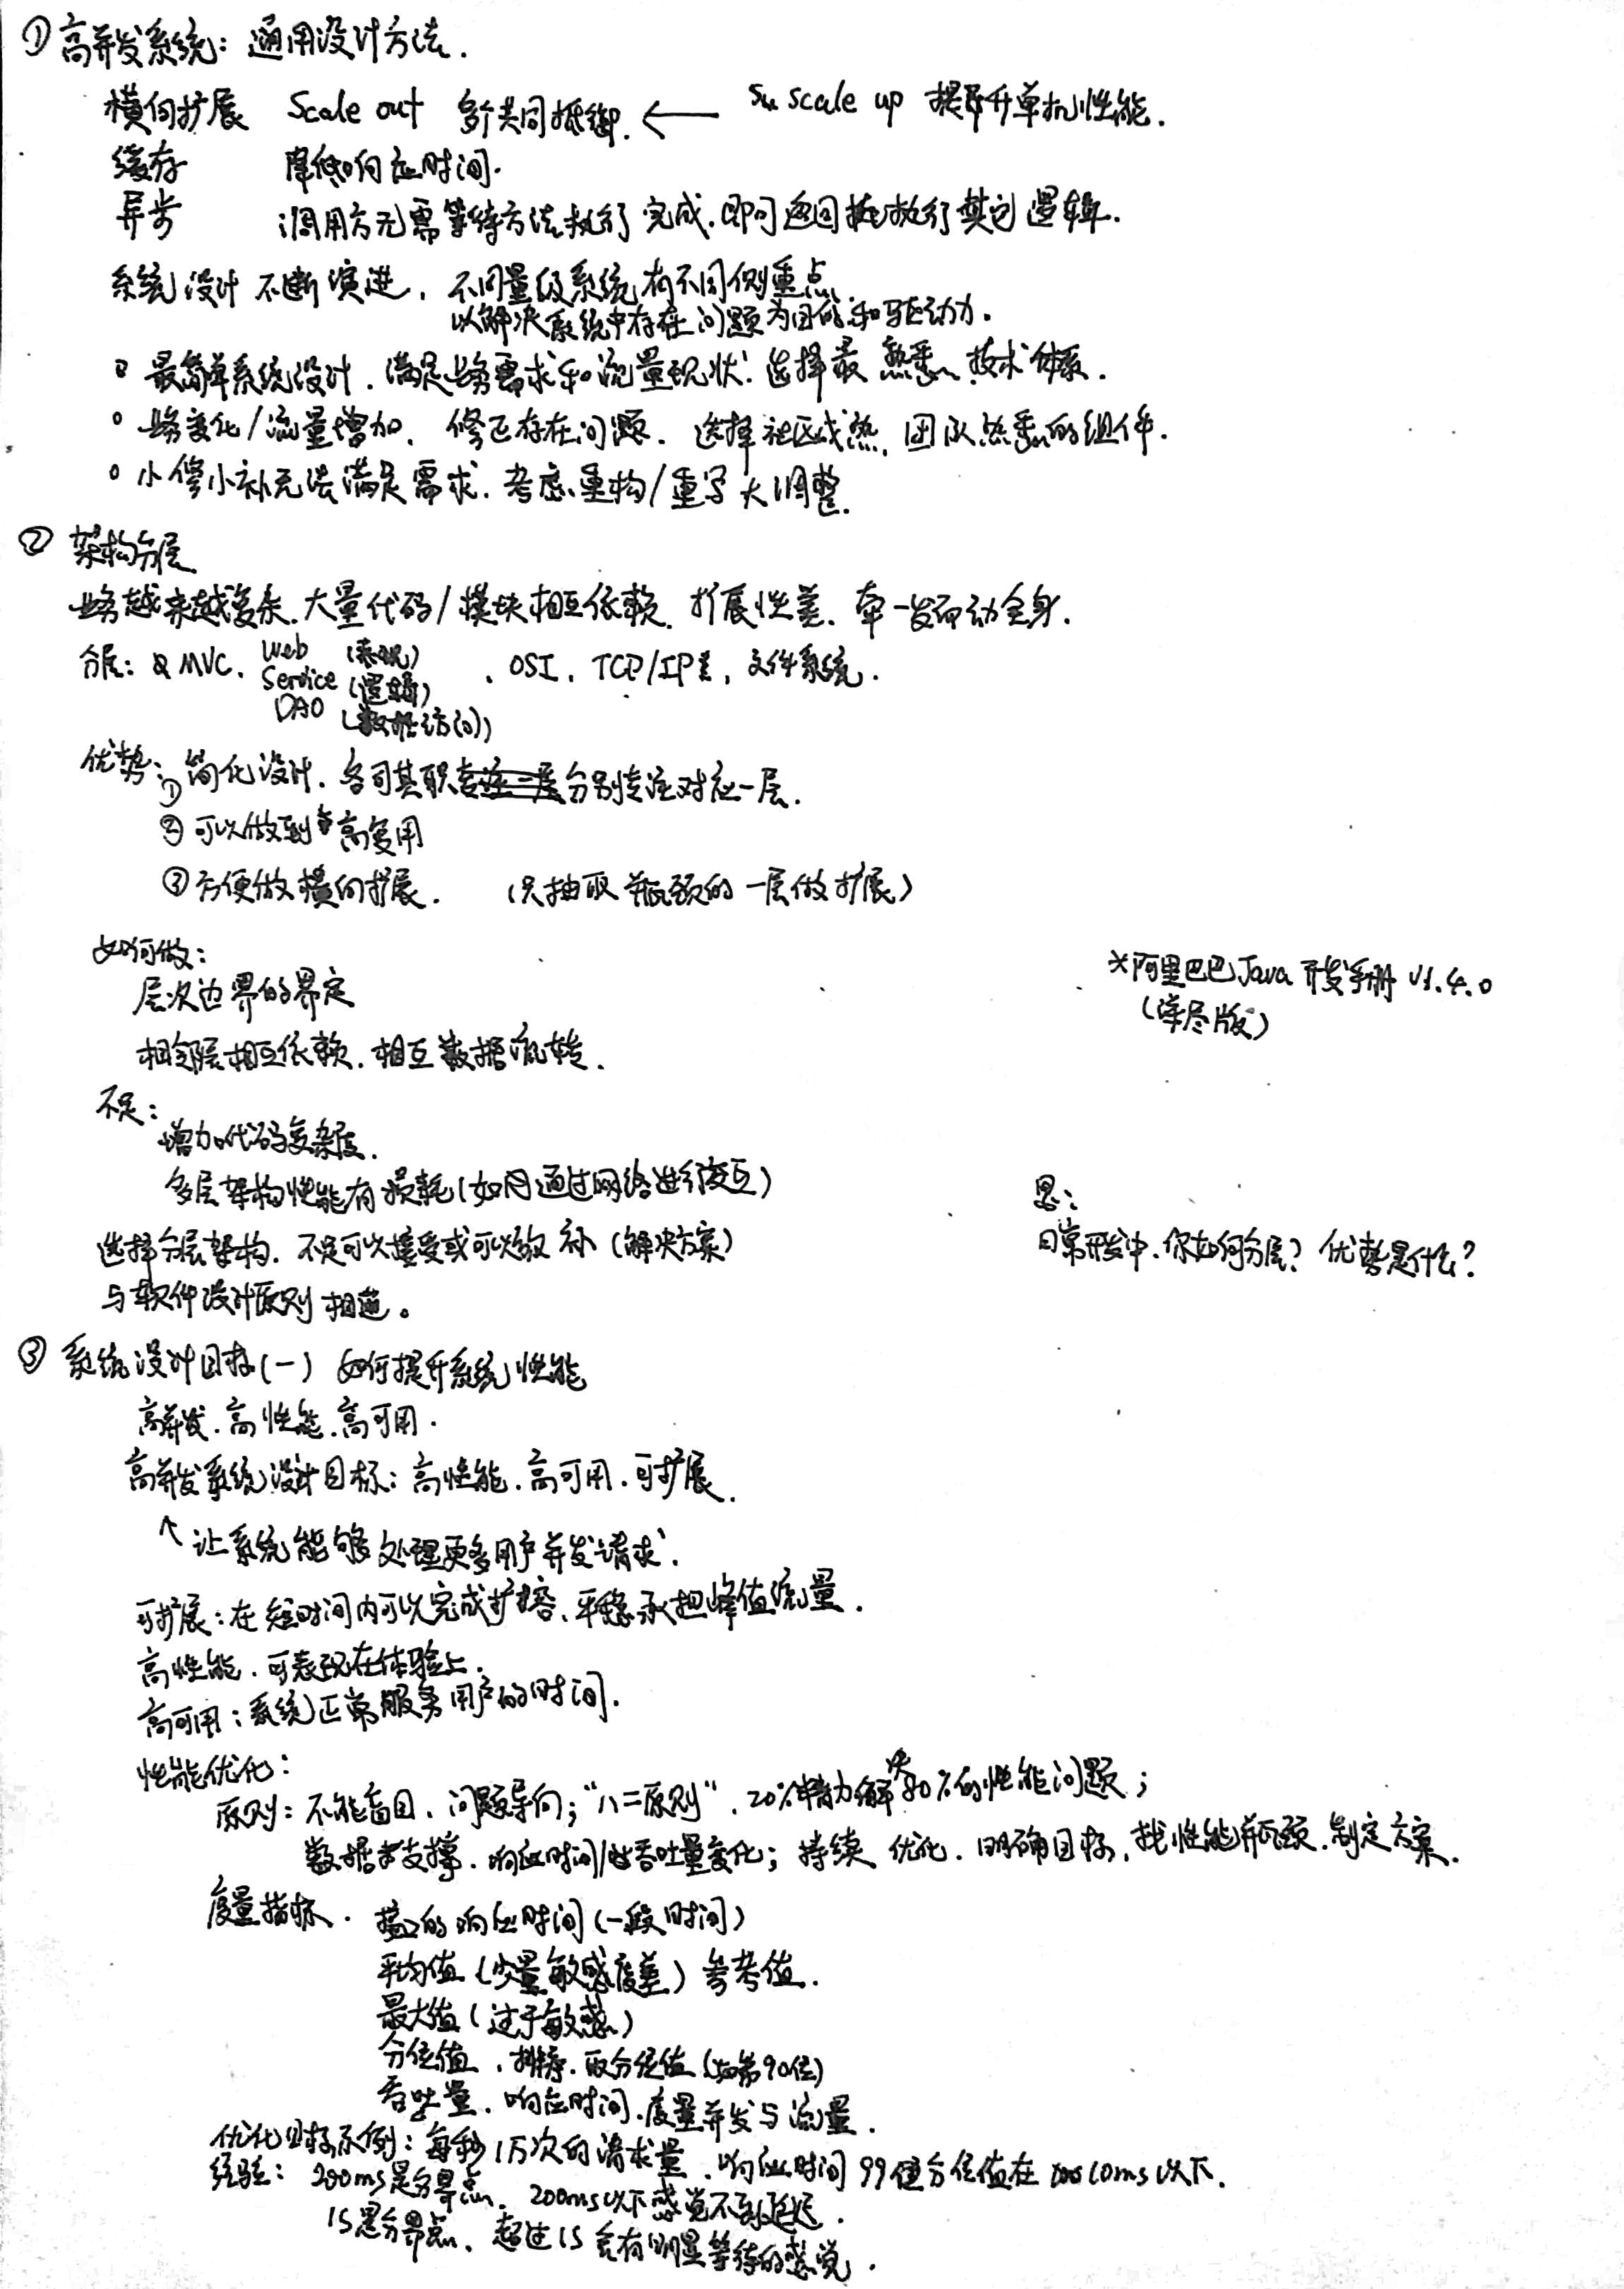 ① 高并发系统：通用设计方法.
横向扩展 Scale out 多个共同抵御. ← scale up 提升单机性能.
缓存 降低响应时间.
异步 调用方无需等待方法执行完成.即可返回执行其它逻辑.
系统设计不断演进, 不同量级系统有不同侧重点
以解决系统中存在问题为目的和驱动力.
最简单系统设计. 满足业务需求和流量现状. 选择最熟悉 技术体系.
。业务变化/流量增加, 修正存在问题. 选择社区成熟, 团队熟悉的组件.
。小修小补无法满足需求. 考虑重构/重写大调整.
② 架构分层
业务越来越复杂.大量代码/模块相互依赖. 扩展性差. 牵一发而动全身.
分层: MVC. Web (表现) . OSI. TCP/IP, 文件系统.
Service (逻辑)
DAO (数据访问)
优势: ①简化设计. 各司其职 分别专注对应一层.
② 可以做到高复用
③ 方便做横向扩展. (只抽取瓶颈的一层做扩展)
如何做:
层次边界的界定
※阿里巴巴Java开发手册 V1.4.0
(详尽版)
相邻层相互依赖. 相互数据流转.
不足:
增加代码复杂度.
多层架构性能有损耗(如 通过网络进行交互)
思:
日常开发中.你如何分层? 优势是什么?
选择分层架构. 不足可以接受或可以弥补 (解决方案)
与软件设计原则相通。
③ 系统设计目标(一) 如何提升系统性能
高并发.高性能.高可用.
高并发系统设计目标: 高性能.高可用.可扩展.
↑ 让系统能够处理更多用户并发请求.
可扩展: 在短时间内可以完成扩容, 平稳承担峰值流量.
高性能. 可表现在体验上.
高可用: 系统正常服务用户的时间.
性能优化:
原则: 不能盲目. 问题导向; “八二原则”. 20%精力解决80%的性能问题;
数据支撑. 响应时间/吞吐量变化; 持续优化. 明确目标, 找性能瓶颈.制定方案.
度量指标. 接口的响应时间(一段时间)
平均值 (少量敏感度差) 参考值.
最大值 (过于敏感)
分位值, 排序. 取分位值 (如第90位)
吞吐量. 响应时间.度量并发与流量.
优化目标示例: 每秒1万次的请求量. 响应时间99 分位值在 10ms以下.
经验: 200ms是分界点. 200ms以下感觉不到延迟.
1S是分界点. 超过1S 会有明显等待的感觉.